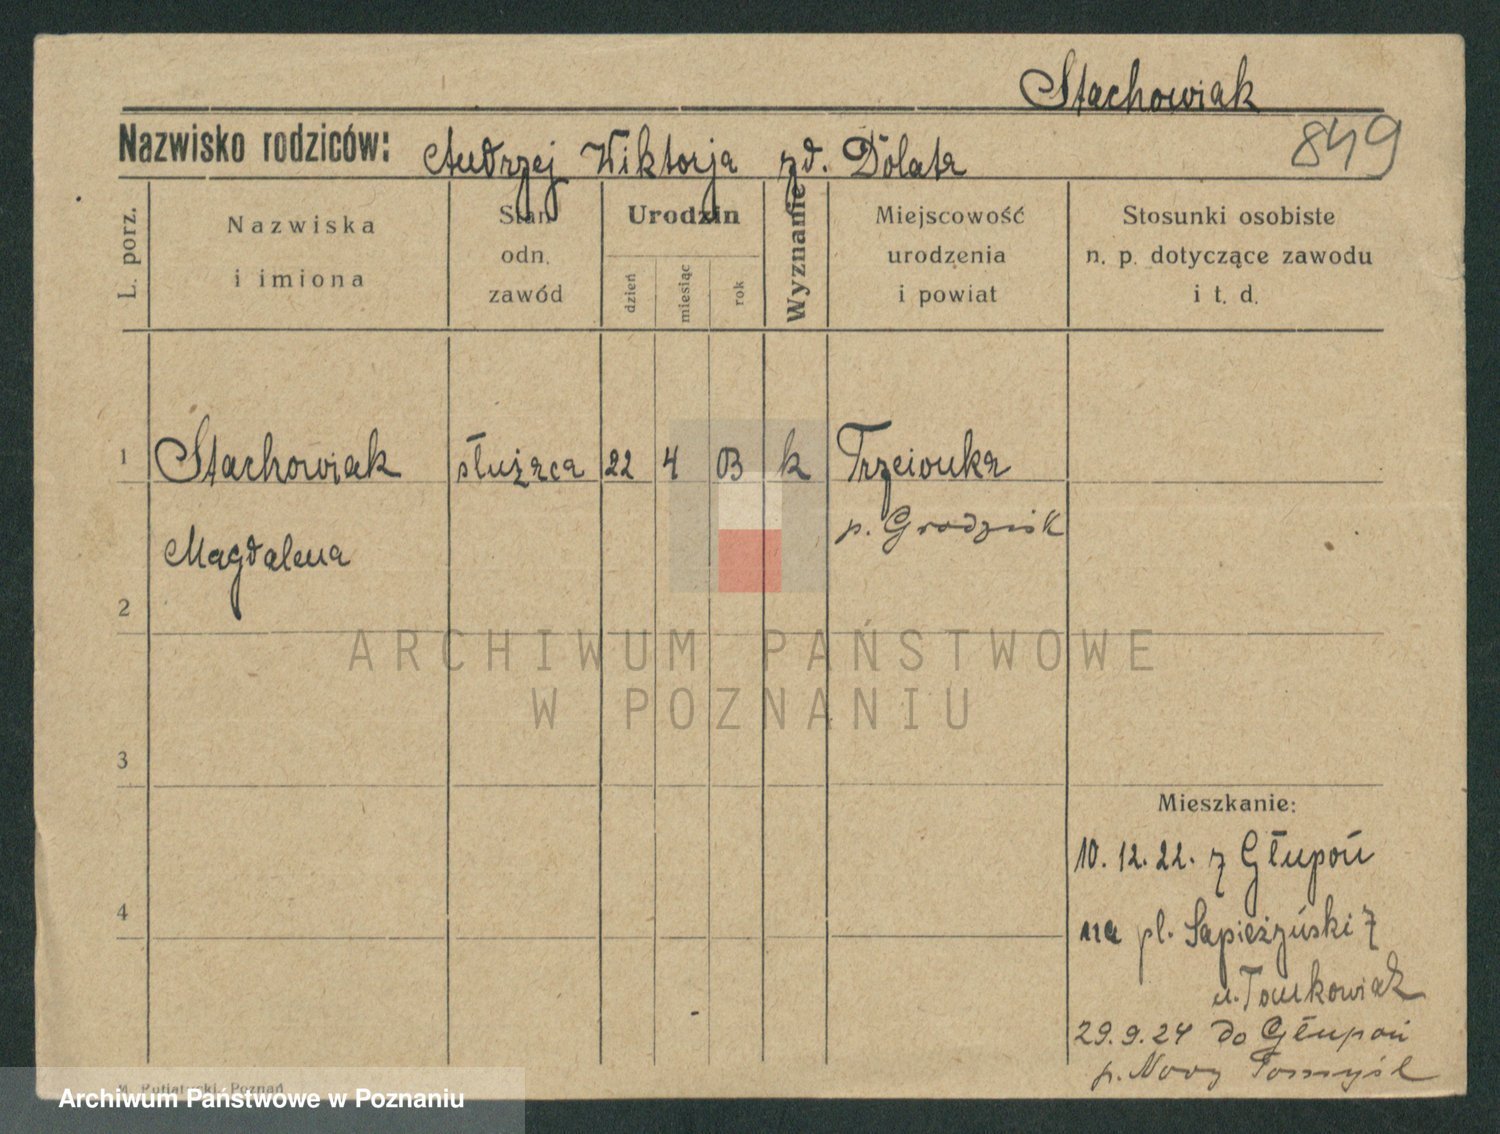 Stachowiak
849
Nazwisko rodziców: Andrzej Wiktorja zd. Dolata
L. porz.
Nazwiska
i imiona
Stan
odn.
zawód
Urodzin
dzień
miesiąc
rok
Wyznanie
Miejscowość
urodzenia
i powiat
Stosunki osobiste
n. p. dotyczące zawodu
i t. d.
1 Stachowiak służąca 22 4 03 k Trzcionka
p. Grodzisk
Magdalena
2
3
4
Mieszkanie:
10. 12. 22. z Głupoń
na pl. Sapieżyński 7
u. Tomkowiak
29. 9. 24 do Głupoń
p. Nowy Tomyśl
M. Putiatycki, Poznań
ARCHIWUM PAŃSTWOWE
W POZNANIU
Archiwum Państwowe w Poznaniu